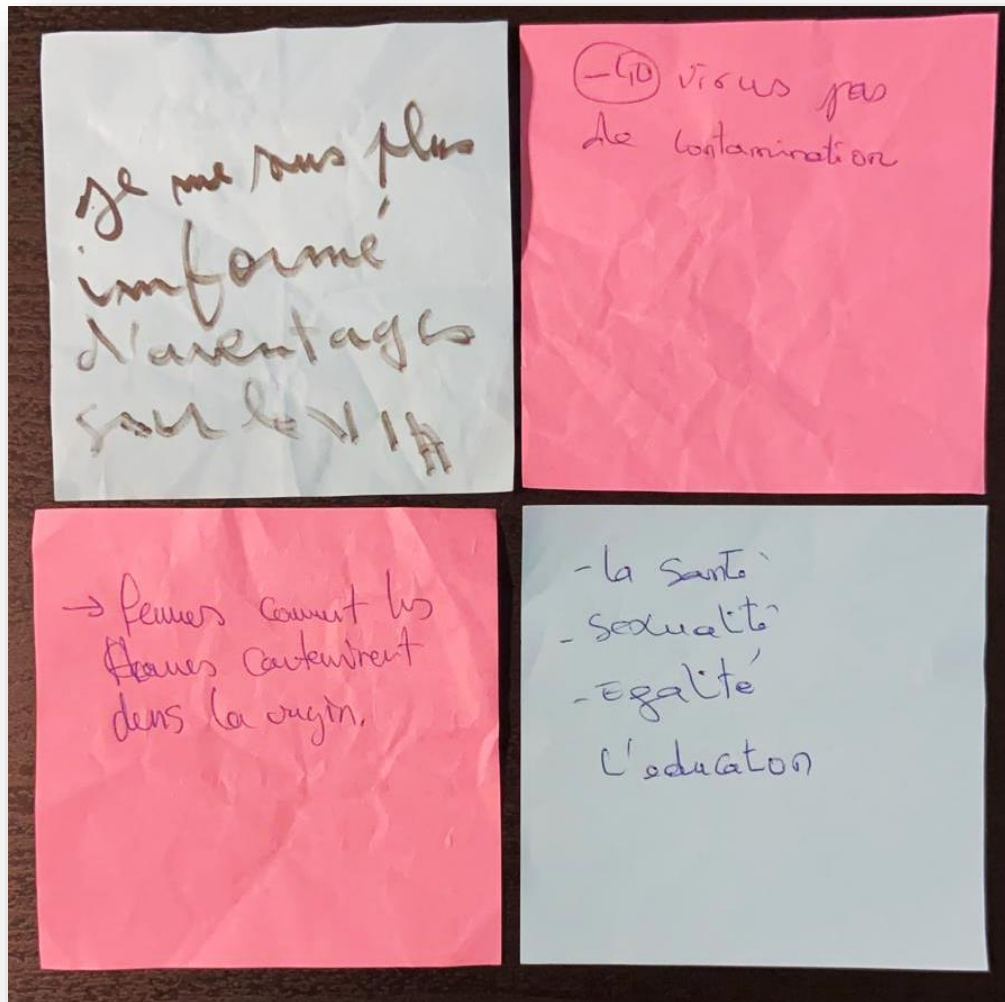 je me suis plus
informé
d'aventages
sur le VIH
-40 virus pas
de contamination
→ femmes comment les
Hommes
dans la vagin.
- la santé
- sexualité
- Egalité
L'education